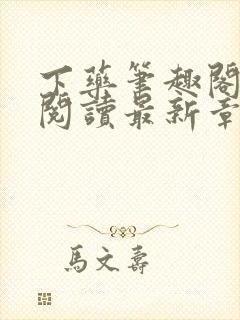 下藥筆趣閣
閱讀最新章
馬文壽